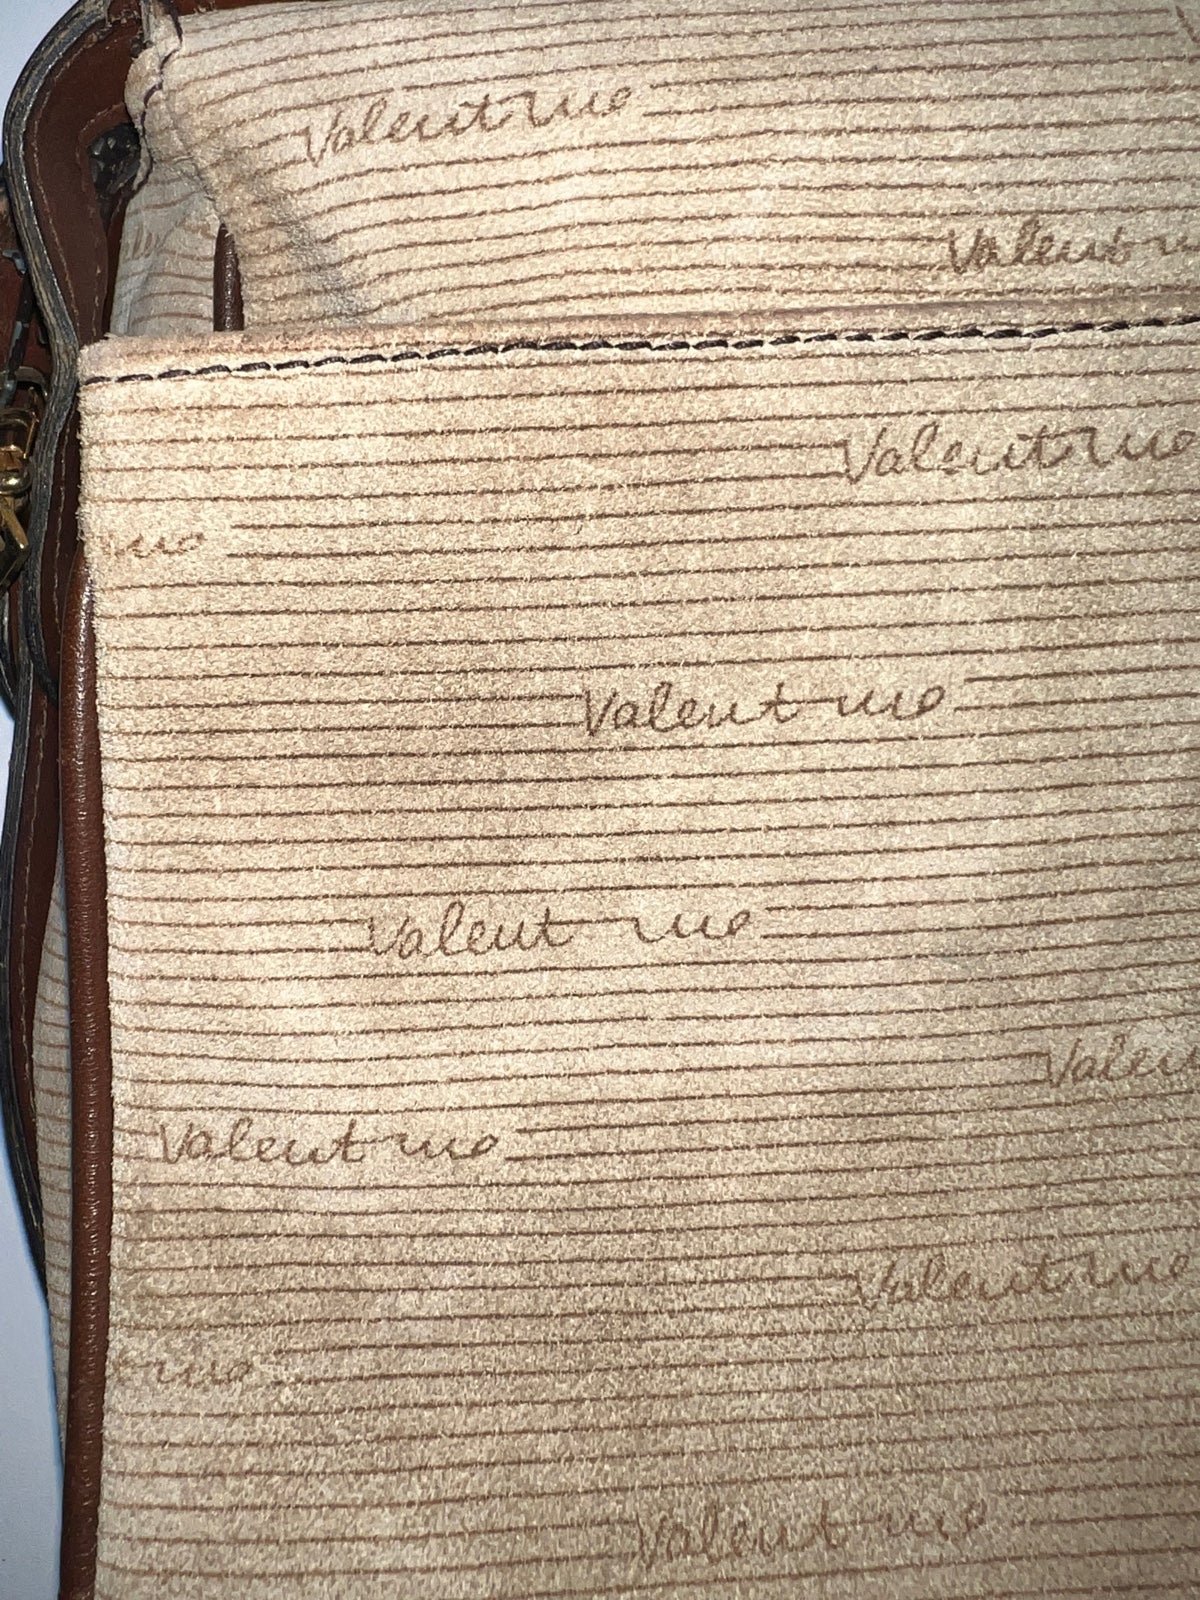 Valentino
Valentino
Valentino
no
Valentino
Valentino
Valen
Valentino
Valentino
tino
Valentino